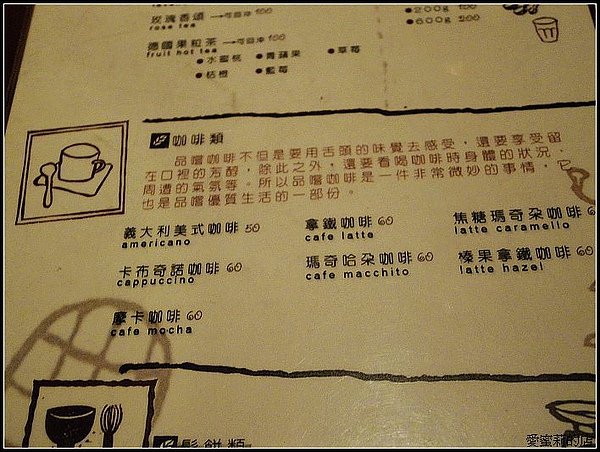 玫瑰香頌 100
rose tea
德國果粒茶 100
fruit hot tea
●水蜜桃 ●青蘋果 ●草莓
●桔橙 ●藍莓
●200g 100
●600g 200
咖啡類
品嚐咖啡不但是要用舌頭的味覺去感受,還要享受留
在口裡的芳醇,除此之外,還要看喝咖啡時身體的狀況、
周遭的氣氛等。所以品嚐咖啡是一件非常微妙的事情,它
也是品嚐優質生活的一部份。
義大利美式咖啡 50
americano
拿鐵咖啡 60
cafe latte
焦糖瑪奇朵咖啡
latte caramello
卡布奇諾咖啡 60
cappuccino
瑪奇哈朵咖啡 60
cafe macchito
榛果拿鐵咖啡 60
latte hazel
摩卡咖啡 60
cafe mocha
鬆餅類
愛蜜莉的店